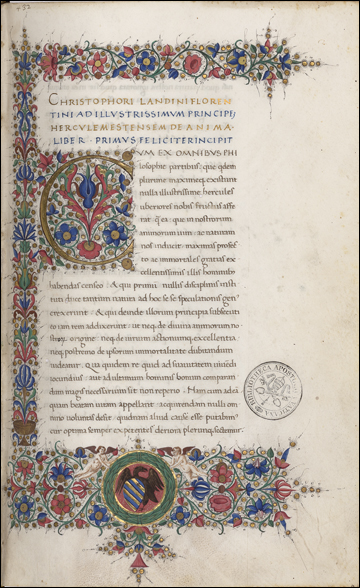 CHRISTOPHORI LANDINI FLOREN
TINI AD ILLVSTRISSIMVM PRINCIPEM
HERCVLEM ESTENSEM DE ANIMA
LIBER PRIMVS FELICITER INCIPIT
CVM EX OMNIBVS PHI
losophie partibus: que quidem
plurime maximeq; existunt
nulla illustrissime hercules
uberiores nobis fructus affe
rat q̃ ea: que in nostrorum
animorum uim: ac naturam
nos inducit: maximas profec
to ac immortales gratias ex
cellentissimis illis hominib;
habendas censeo: & qui primi nullis disciplinis insti
tuti duce tantum natura ad hoc se se speculationis gen
erexerunt: & qui deinde illorum principia subsecuti
eo rem adduxerunt: ut neq; de diuina animorum no
origine: neq; de uirium
neq; postremo de ipsorum immortalitate dubitandum
uideatur. Qua quidem re quid ad suauitatem uiuendi
iocundius: aut ad ultimum bonorum bonum comparan
dum magis necessarium sit non reperio. Nam cum adeo
quam beatam uitam appellant acquirendam nulli om
nino uoluntas desit: quidnam aliud cause esse putabimus
cur optima semper expetentes deriora plerunq; sectemur.
BIBLIOTHECA APOSTOLICA VATICANA